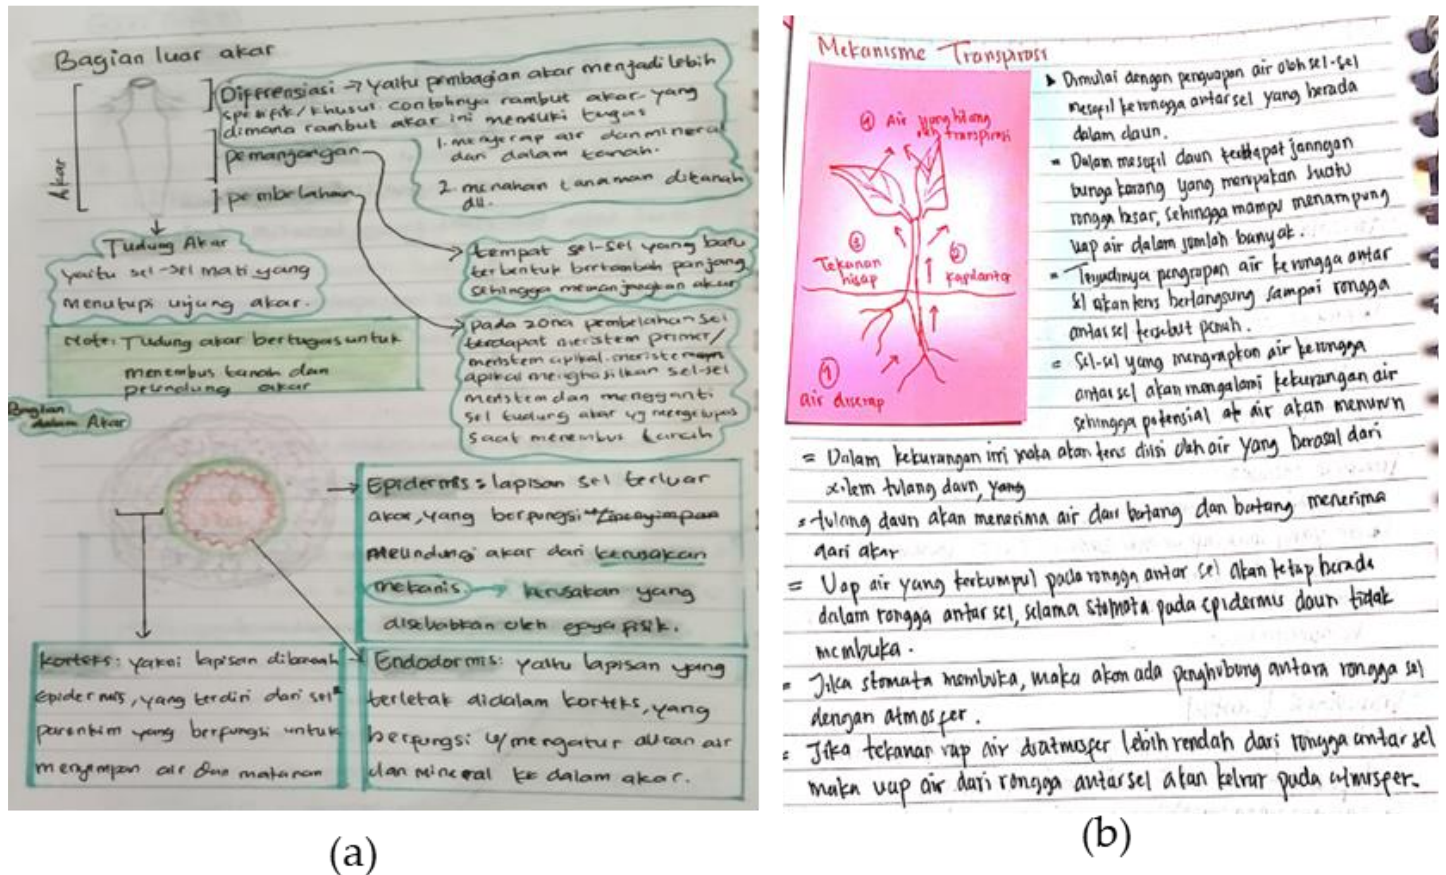 Bagian luar akar
Akar
Differensiasi → yaitu pembagian akar menjadi lebih
spesifik/khusus. contohnya rambut akar yang
dimana rambut akar ini memiliki tugas
1. menyerap air dan mineral
dari dalam tanah.
2. menahan tanaman ditanah
dll.
pemanjangan
pembelahan
Tudung Akar
yaitu sel-sel mati yang
menutupi ujung akar.
Note: Tudung akar bertugas untuk
menembus tanah dan
pelindung akar
tempat sel-sel yang baru
terbentuk bertambah panjang
sehingga memanjangkan akar
pada zona pembelahan sel
terdapat meristem primer/
meristem apikal. meristem
apikal menghasilkan sel-sel
meristem dan mengganti
sel tudung akar yg mengelupas
saat menembus tanah
Bagian
dalam Akar
Epidermis: lapisan sel terluar
akar, yang berfungsi
melindungi akar dari kerusakan
mekanis. → kerusakan yang
disebabkan oleh gaya fisik.
korteks: yakni lapisan dibawah
Epidermis, yang terdiri dari sel"
parenkim yang berfungsi untuk
menyimpan air dan makanan
Endodermis: yaitu lapisan yang
terletak didalam korteks, yang
berfungsi u/mengatur aliran air
dan mineral ke dalam akar.
(a)
Mekanisme Transpirasi
④ Air yang hilang
oleh transpirasi
③
Tekanan
hisap
②
Kapilaritas
①
air diserap
Dimulai dengan penguapan air oleh sel-sel
mesofil kerongga antar sel yang berada
dalam daun.
= Dalam mesofil daun terdapat jaringan
bunga karang yang merupakan suatu
rongga besar, sehingga mampu menampung
uap air dalam jumlah banyak.
= Terjadinya penguapan air kerongga antar
sel akan terus berlangsung sampai rongga
antar sel tersebut penuh.
= Sel-sel yang menguapkan air kerongga
antar sel akan mengalami kekurangan air
sehingga potensial air akan menurun
= Dalam kekurangan ini maka akan terus diisi oleh air yang berasal dari
xilem tulang daun, yang
= tulang daun akan menerima air dari batang dan batang menerima
dari akar
= Uap air yang terkumpul pada rongga antar sel akan tetap berada
dalam rongga antar sel, selama stomata pada epidermis daun tidak
membuka.
= Jika stomata membuka, maka akan ada penghubung antara rongga sel
dengan atmosfer.
= Jika tekanan uap air diatmosfer lebih rendah dari rongga antar sel
maka uap air dari rongga antar sel akan keluar pada atmosfer.
(b)